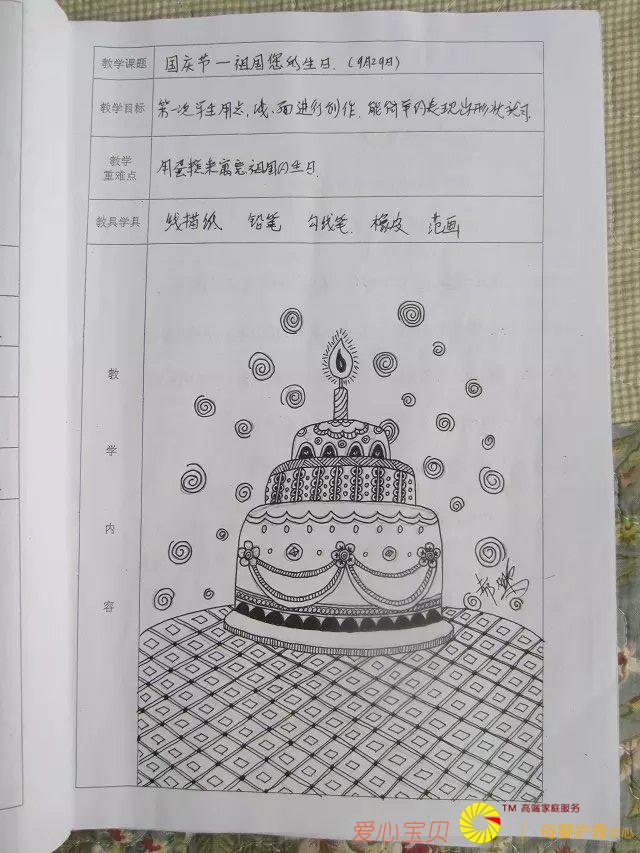 教学课题 国庆节—祖国您的生日.(9月29日)
教学目标 第一次学生用点、线、面进行创作.能简单的表现出形状
教学重难点 用蛋糕来寓意祖国的生日.
教具学具 线描纸 铅笔 勾线笔. 橡皮 范画
教学内容
TM 高端家庭服务
爱心宝贝
母婴护理中心